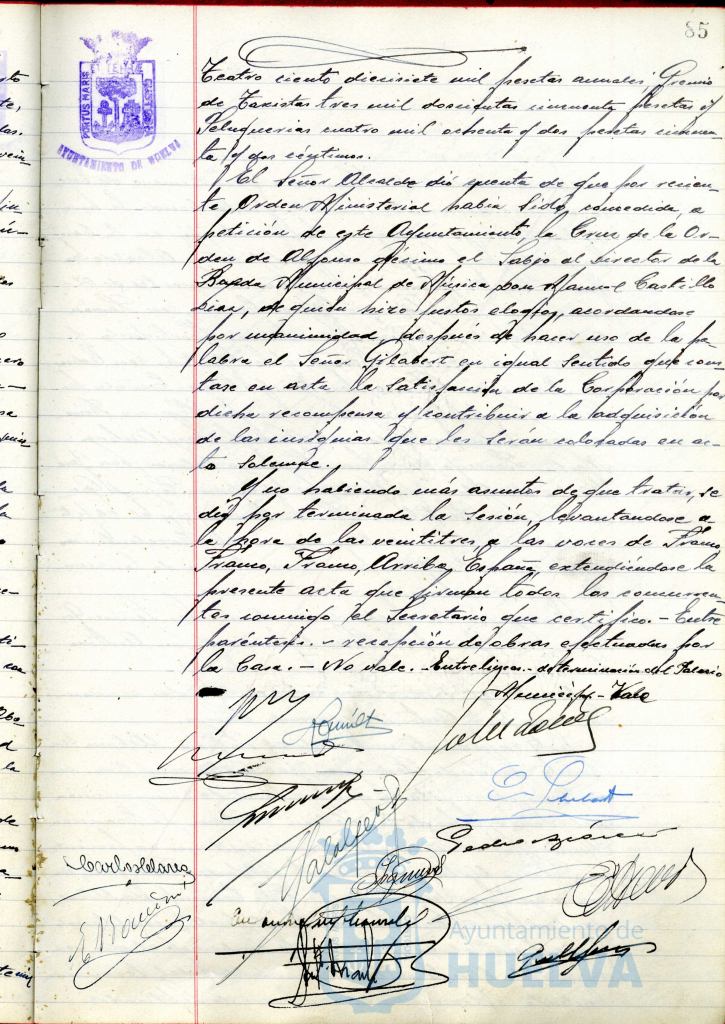 85
PORTUS MARIS ET TERRAE CUSTODIA
AYUNTAMIENTO DE HUELVA
Teatro ciento diecisiete mil pesetas anuales; Gremio
de Taxistas tres mil doscientas cincuenta pesetas y
Peluquerias cuatro mil ochenta y dos pesetas cincuen-
ta y dos céntimos.
El Señor Alcalde dió cuenta de que por recien-
te Orden Ministerial habia sido concedida, a
petición de este Ayuntamiento, la Cruz de la Or-
den de Alfonso décimo el Sabio al Director de la
Banda Municipal de Música Don Manuel Castillo
Diaz, de quien hizo justos elogios, acordandose
por unanimidad, después de hacer uso de la pa-
labra el Señor Gilabert en igual sentido que cons-
tase en acta la satisfacción de la Corporación por
dicha recompensa y contribuir a la adquisición
de las insignias que les serán colocadas en ac-
to solemne.
Y no habiendo más asuntos de que tratar, se
dió por terminada la sesión, levantandose a
la hora de las veintitres, a las voces de Franco,
Franco, Franco, Arriba España, extendiéndose la
presente acta que firman todos los concurren-
tes conmigo el Secretario que certifico.- Entre
paréntesis.- recepción de obras efectuadas por
la Casa.- No vale. Entrelineas.- determinación del Palacio
Municipal- Vale
Pedro
Carlos
Ayuntamiento de
HUELVA